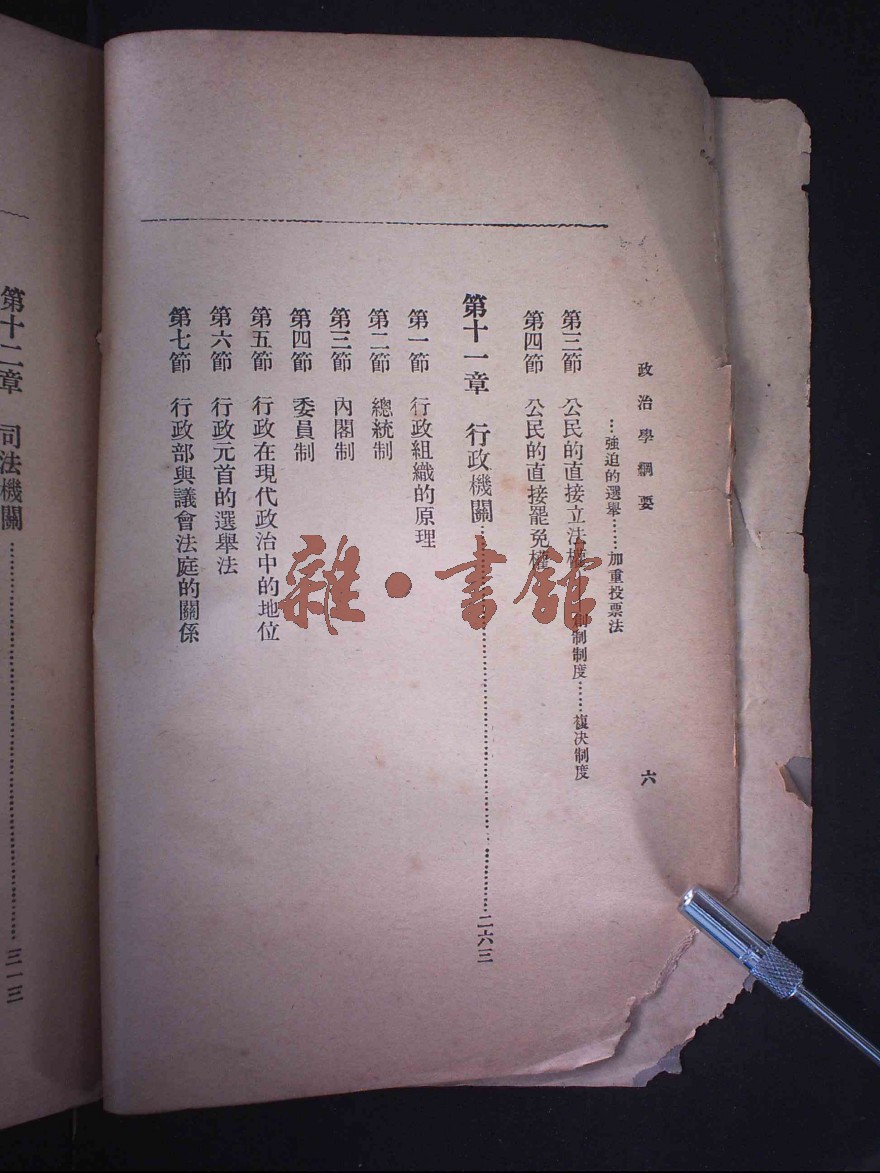 政治學綱要
六
…強迫的選舉……加重投票法
第三節 公民的直接立法權……創制制度……複決制度
第四節 公民的直接罷免權
第十一章 行政機關……二六三
第一節 行政組織的原理
第二節 總統制
第三節 內閣制
第四節 委員制
第五節 行政在現代政治中的地位
第六節 行政元首的選舉法
第七節 行政部與議會法庭的關係
第十二章 司法機關……三一三
雜·書館